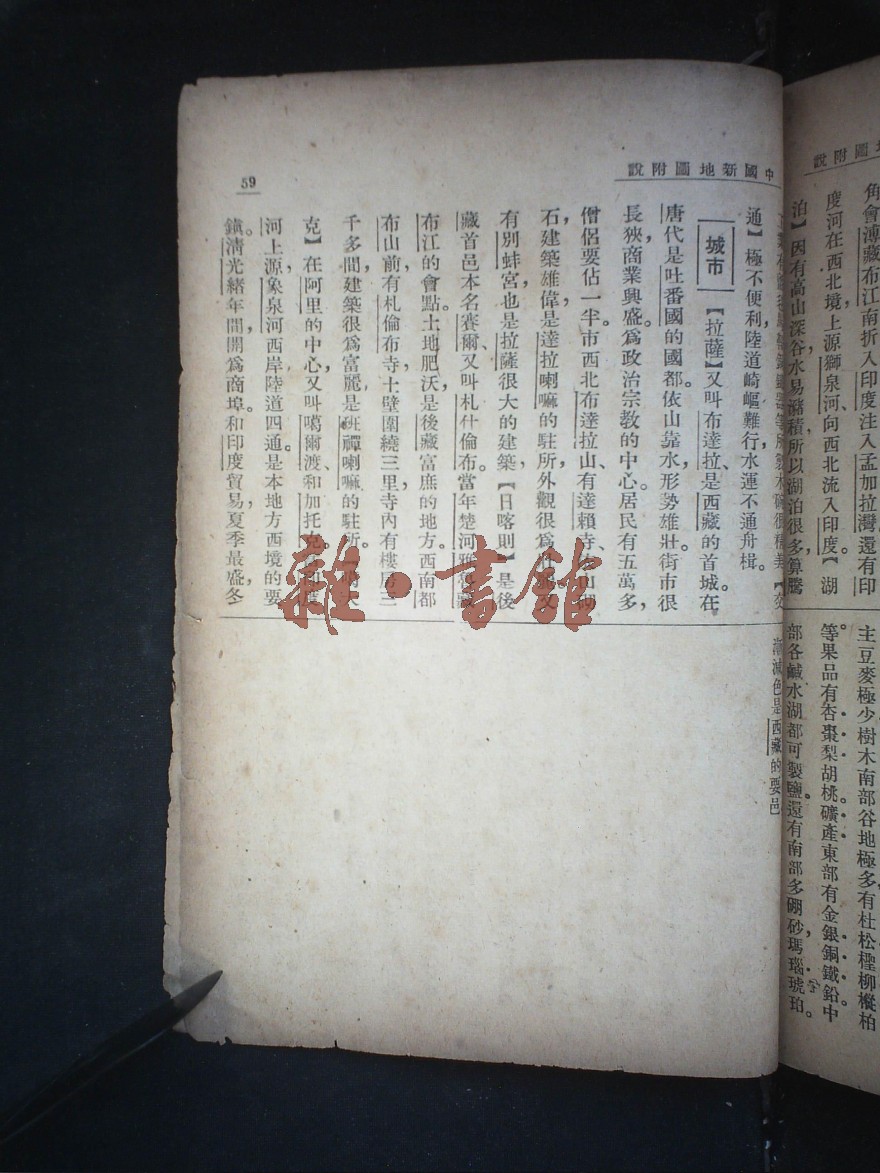 角會薄藏布江南折入印度注入孟加拉灣還有印
度河在西北境上源獅泉河、向西北流入印度。【湖
泊】因有高山深谷水易瀦積所以湖泊很多算騰
主豆麥極少樹木南部谷地極多有杜松檉柳樅柏
等果品有杏棗梨胡桃。礦產東部有金銀銅鐵鉛中
部各鹹水湖都可製鹽還有南部多硼砂瑪瑙琥珀。
中國新地圖附說
59
通】極不便利陸道崎嶇難行水運不通舟楫。
城市
【拉薩】又叫布達拉、是西藏的首城。在
唐代是吐番國的國都。依山靠水形勢雄壯街市很
長狹商業興盛。爲政治宗教的中心。居民有五萬多，
僧侶要佔一半市西北布達拉山、有達賴寺山
石，建築雄偉是達拉喇嘛的駐所外觀很爲
有別蚌宮，也是拉薩很大的建築，【日喀則】是後
藏首邑本名賽爾、又叫札什倫布。當年楚河
布江的會點。土地肥沃，是後藏富庶的地方。西南都
布山前，有札倫布寺土壁圍繞三里，寺內有樓房三
千多間，建築很爲富麗是班禪喇嘛的駐所。
克】在阿里的中心，又叫噶爾渡、和加托克。
河上源，象泉河西岸陸道四通。是本地方西境的要
鎮。清光緒年間，開爲商埠。和印度貿易，夏季最盛，冬
色是西藏的要邑